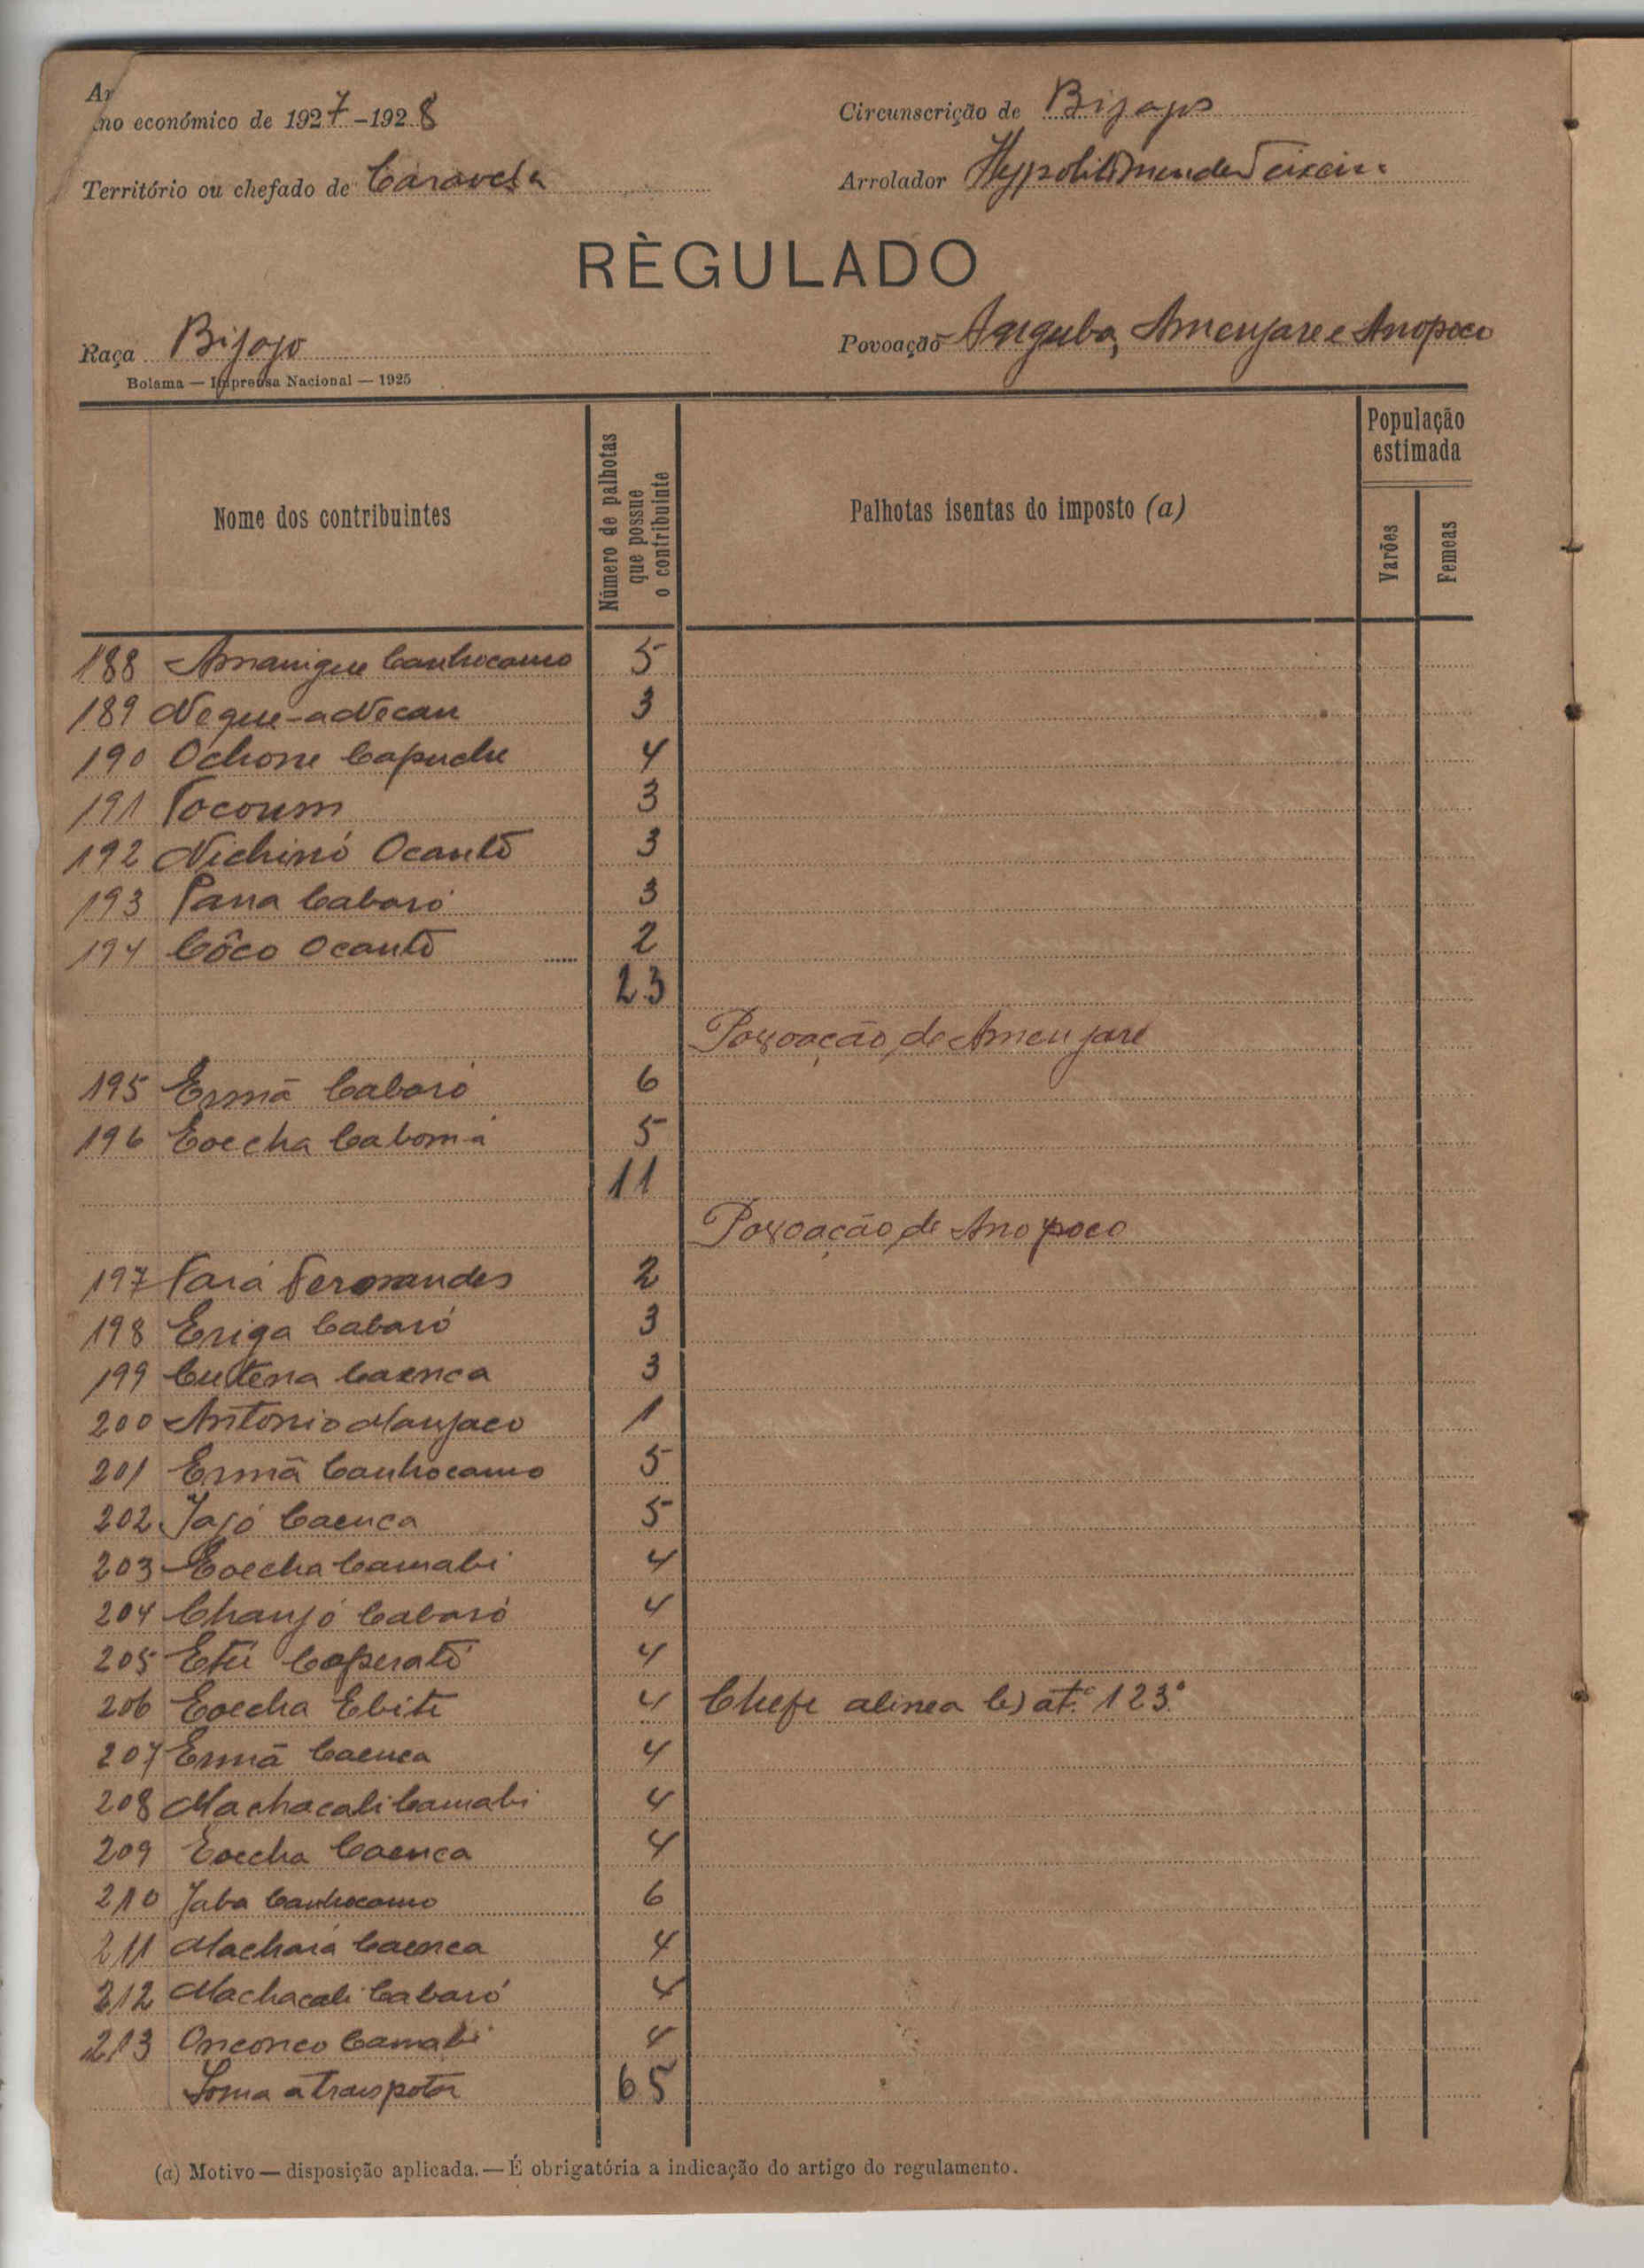 Ano económico de 1927-1928
Circunscrição de Bijagos
Território ou chefado de Caravela
Arrolador Hypolito Mendes Teixeira
RÈGULADO
Raça Bijogo
Povoação Anguba, Amenjare e Anopoco
Bolama — Imprensa Nacional — 1925
Nome dos contribuintes
Número de palhotas que possue o contribuinte
Palhotas isentas do imposto (a)
População estimada
Varões
Femeas
188 Amanigue Canhocamo 5
189 Neque-a Necan 3
190 Ochone Capuche 4
191 Focoum 3
192 Nichinó Ocantõ 3
193 Pana Cabaró 3
194 Côco Ocantõ 2
23
Povoação de Amenjare
195 Ermã Cabaró 6
196 Eoecha Cabomá 5
11
Povoação de Anopoco
197 Fará Fernandes 2
198 Eriga Cabaró 3
199 Cutena Caenca 3
200 Antonio Manjaco 1
201 Ermã Canhocamo 5
202 Jajó Caenca 5
203 Eoecha Camabi 4
204 Chanjó Cabaró 4
205 Etü Caperatõ 4
206 Eoecha Ebite 4 Chefe alinea b) atº. 123.º
207 Ermã Caenca 4
208 Machacali Camabi 4
209 Eoecha Caenca 4
210 Jaba Canhocamo 6
211 Machará Caenca 4
212 Machacali Cabaró 4
213 Onconco Camabi 4
Soma a transpotar 65
(a) Motivo — disposição aplicada. — É obrigatória a indicação do artigo do regulamento.